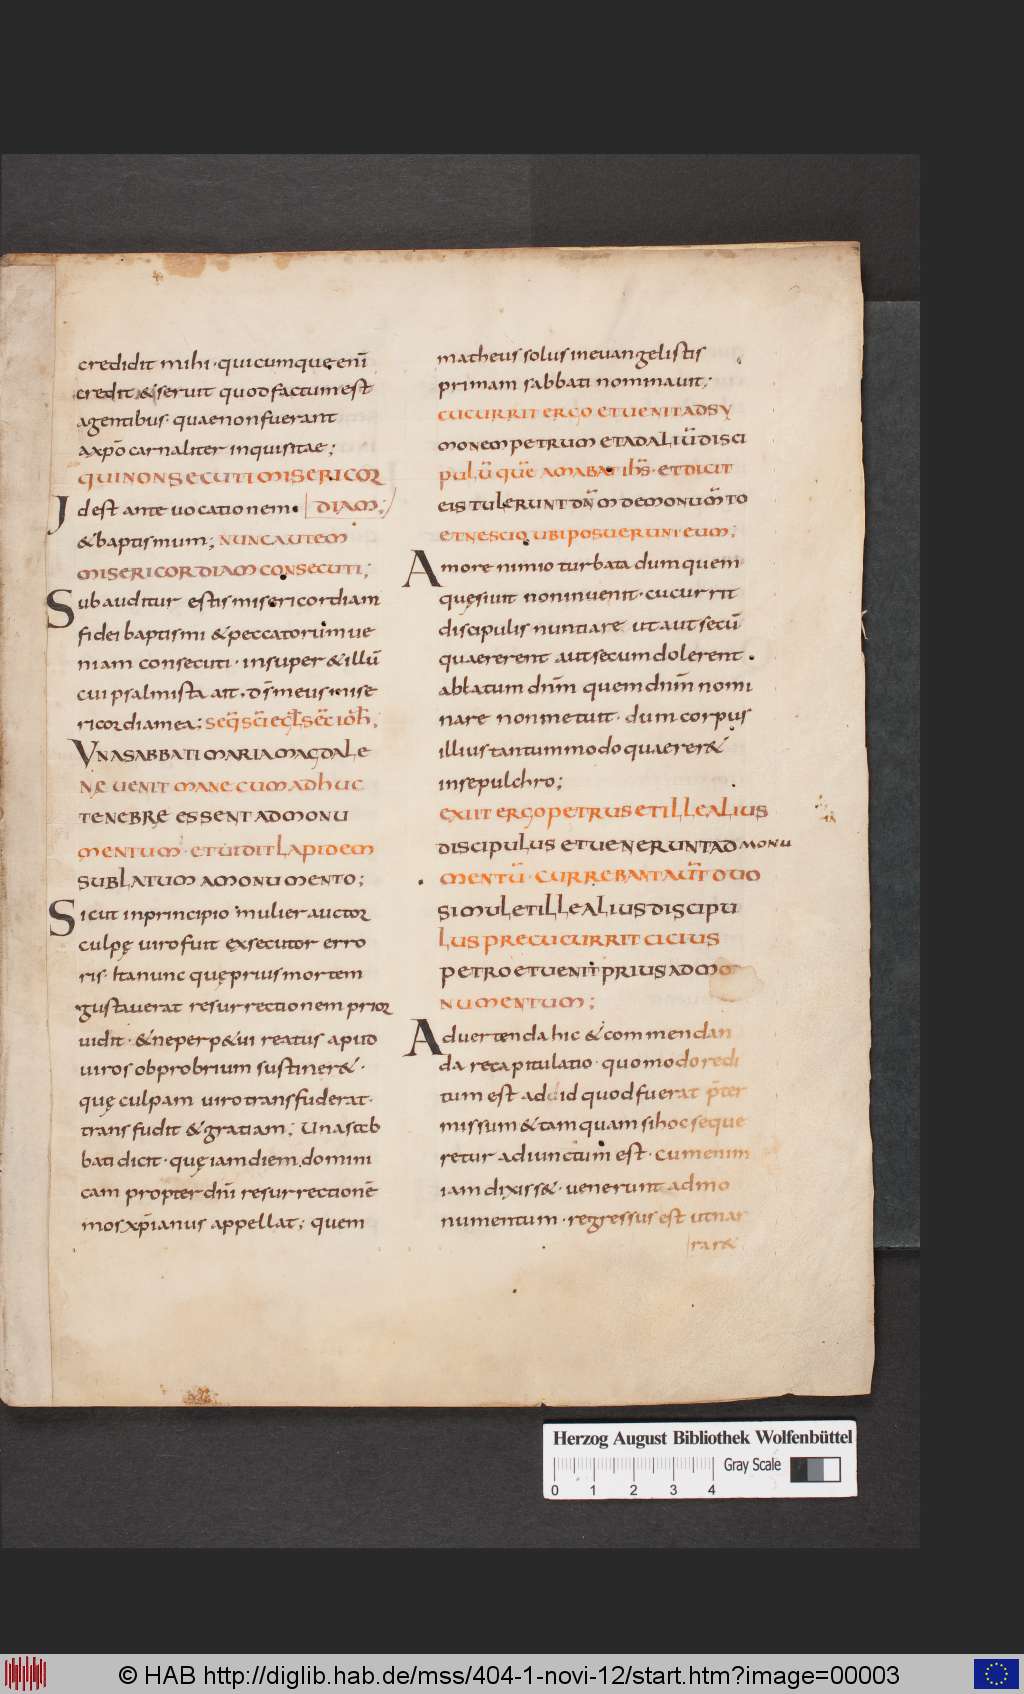 credidit mihi · quicumque enī
credit & seruit quod factum est
agentibus · quae non fuerant
a xpō carnaliter inquisitae;
QUI NON SECUTI MISERICOR
DIAM;
Id est ante uocationem
& baptismum; NUNC AUTEM
MISERICORDIAM CONSECUTI;
Subauditur estis misericordiam
fidei baptismi & peccatorum ue
niam consecuti · insuper & illū
cui psalmista ait · ds̄ meus mise
ricordia mea;
UNA SABBATI MARIA MAGDALE
NĘ UENIT MANE CUM ADHUC
TENEBRE ESSENT AD MONU
MENTUM · ET UIDIT LAPIDEM
SUBLATUM A MONUMENTO;
Sicut in principio mulier auctor
culpę uiro fuit exsecutor erro
ris · Ita nunc quę prius mortem
gustauerat resurrectionem prior
uidit · & ne perp&ui reatus apud
uiros obprobrium sustiner& ·
quę culpam uiro transfuderat ·
transfudit & gratiam; Una sab
bati dicit · quę iam diem domini
cam propter dnī resurrectionē
mos xp̄ianus appellat; quem
matheus solus in euangelistis
primam sabbati nominauit;
CUCURRIT ERGO ET UENIT AD SY
MONEM PETRUM ET AD ALIŪ DISCI
PULŪ QUĒ AMABAT IHS̄ · ET DICIT
EIS TULERUNT DN̄M DE MONUM̄TO
ET NESCIO UBI POSUERUNT EUM;
Amore nimio turbata dum quem
quęsiuit non inuenit · cucurrit
discipulis nuntiare ut aut secū
quaererent aut secum dolerent ·
ablatum dnm̄ quem dnm̄ nomi
nare non metuit · dum corpus
illius tantummodo quaerer&
in sepulchro;
EXIIT ERGO PETRUS ET ILLE ALIUS
DISCIPULUS ET UENERUNT AD MONU
MENTŪ · CURREBANT AUT̄ DUO
SIMUL ET ILLE ALIUS DISCIPU
LUS PRECUCURRIT CICIUS
PETRO ET UENIT PRIUS AD MO
NUMENTUM;
Aduertenda hic & commendan
da recapitulatio · quomodo redi
tum est ad id quod fuerat p̄ter
missum & tamquam si hoc seque
retur adiunctum est · cum enim
iam dixiss& · uenerunt ad mo
numentum · regressus est ut nar
rar&
Herzog August Bibliothek Wolfenbüttel
Gray Scale
0 1 2 3 4
© HAB http://diglib.hab.de/mss/404-1-novi-12/start.htm?image=00003